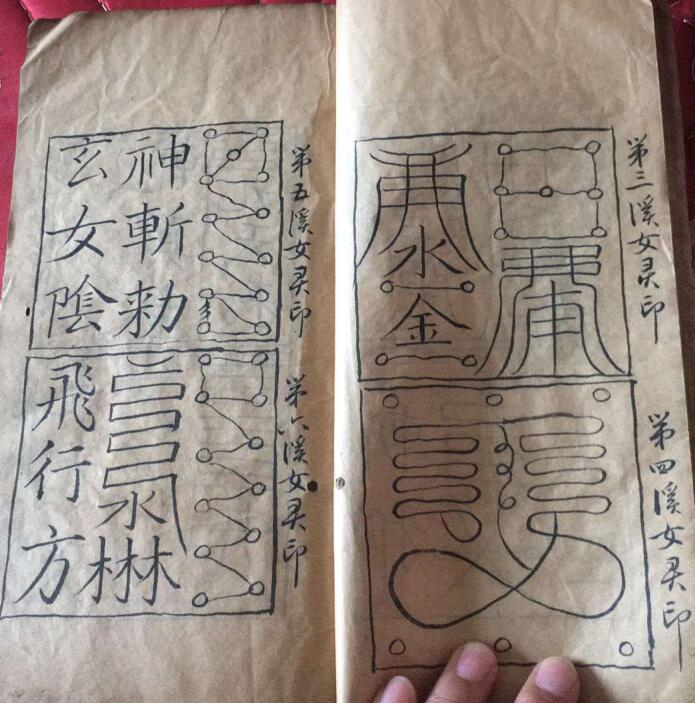 第三溪女灵印
水
金
第四溪女灵印
第五溪女灵印
神斬勑
玄女陰
第六溪女灵印
水
飛行方